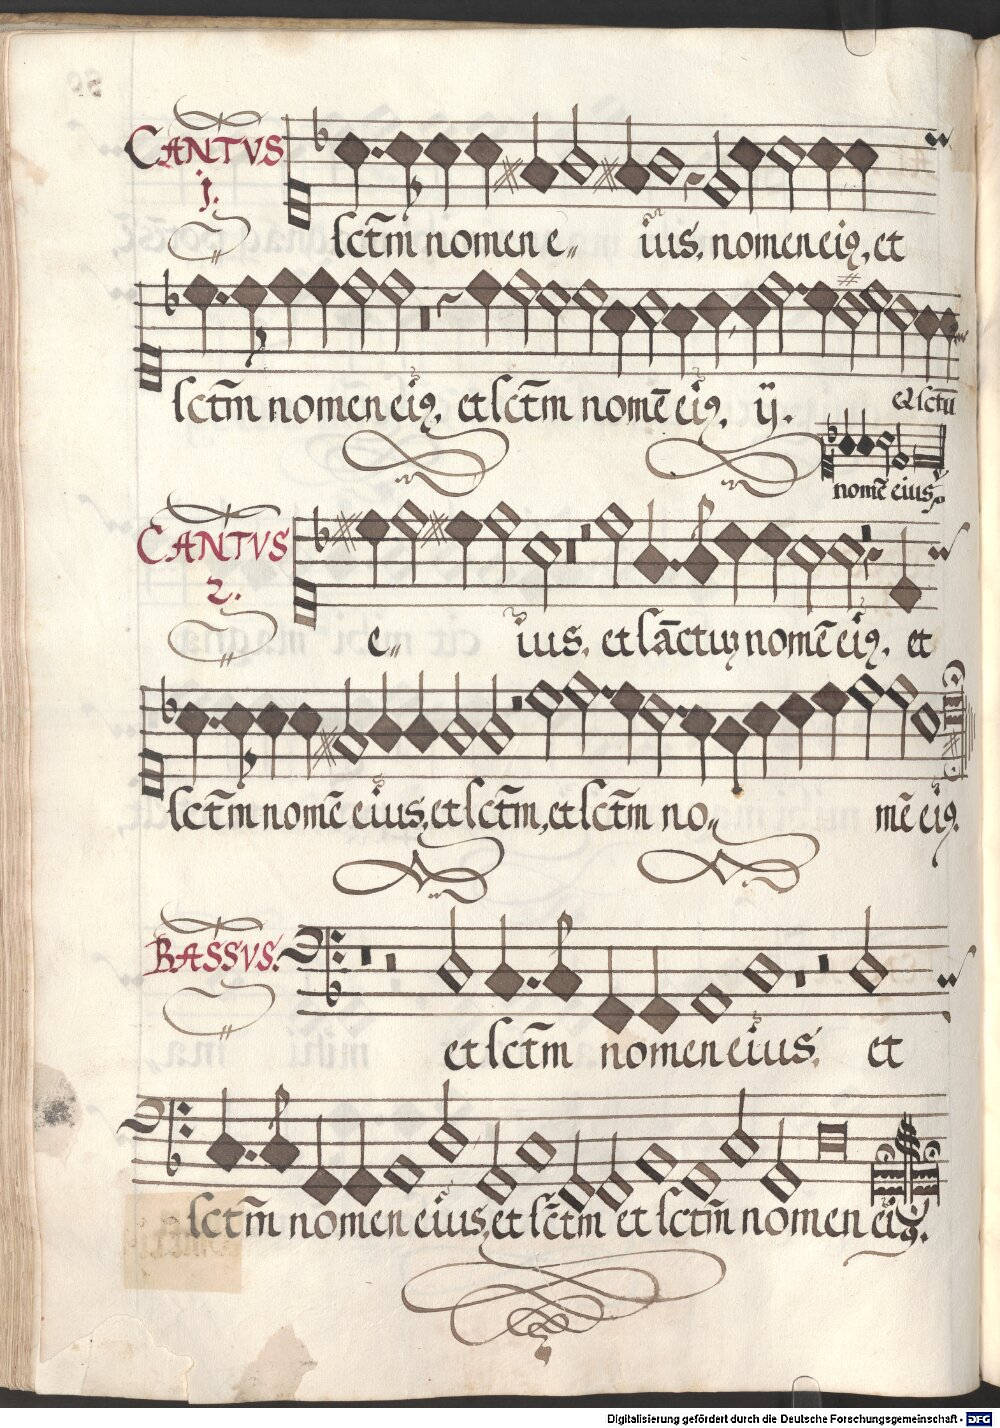 CANTVS
1.
sctm̄ nomen e„ ius, nomen eiꝰ, et
sctm̄ nomen eiꝰ, et sctm̄ nomē eiꝰ, ij. et sctū
nomē eius,
CANTVS
2.
e„ ius, et sāctuꝫ nomē eiꝰ, et
sctm̄ nomē eius, et sctm̄, et sctm̄ no„ mē eiꝰ.
BASSVS.
et sctm̄ nomen eius, et
sctm̄ nomen eius, et sctm̄ et sctm̄ nomen eiꝰ.
Digitalisierung gefördert durch die Deutsche Forschungsgemeinschaft - DFG